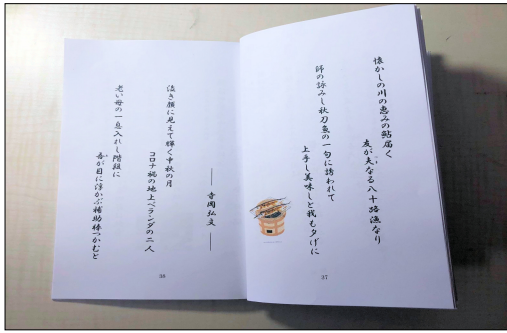 懐かしの川の恵みの鮎届く
友が夫なる八十路漁なり
師の詠みし秋刀魚の一句に誘われて
上手し美味しと我も夕げに
27
── 寺岡弘文 ──
泣き顔に見えて輝く中秋の月
コロナ禍の地上ベランダの二人
老い母の一息入れし階段に
吾が目に浮かぶ補助棒つかむと
38